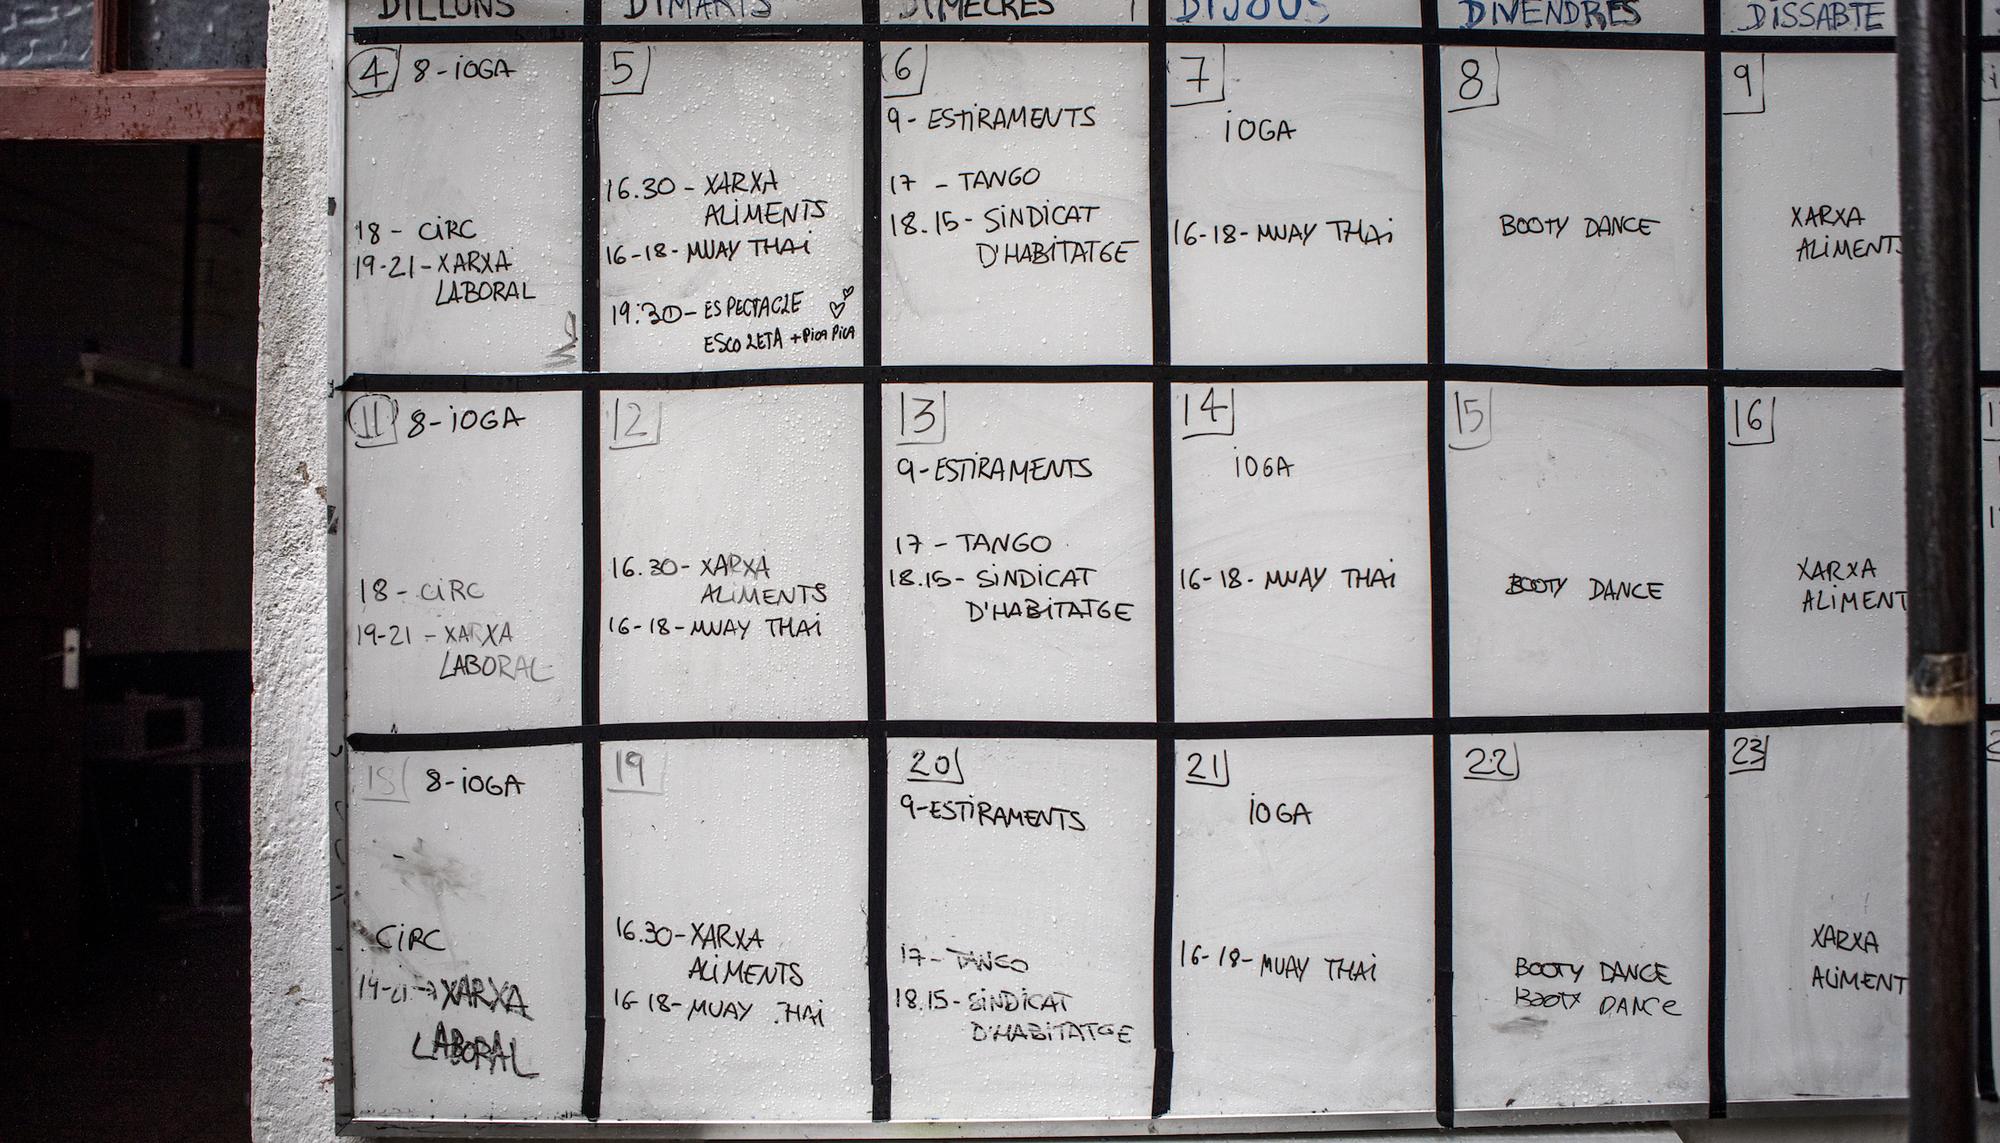 DILLUNS
DIMARTS
DIMECRES
DIJOUS
DIVENDRES
DISSABTE
4
8-IOGA
18 - CIRC
19-21-XARXA
LABORAL
5
16.30 - XARXA
ALIMENTS
16-18-MUAY THAI
19:30-ESPECTACLE
ESCOLETA + PICA PICA
6
9- ESTIRAMENTS
17 - TANGO
18.15- SINDICAT
D'HABITATGE
7
IOGA
16-18-MUAY THAI
8
BOOTY DANCE
9
XARXA
ALIMENTS
11
8-IOGA
18 - CIRC
19-21 - XARXA
LABORAL
12
16.30- XARXA
ALIMENTS
16-18-MUAY THAI
13
9-ESTIRAMENTS
17 - TANGO
18.15- SINDICAT
D'HABITATGE
14
IOGA
16-18-MUAY THAI
15
BOOTY DANCE
16
XARXA
ALIMENT
18
8-IOGA
CIRC
XARXA
LABORAL
19
16.30-XARXA
ALIMENTS
16-18-MUAY THAI
20
9-ESTIRAMENTS
17-TANGO
18.15-SINDICAT
D'HABITATGE
21
IOGA
16-18-MUAY THAI
22
BOOTY DANCE
BOOTY DANCE
23
XARXA
ALIMENT